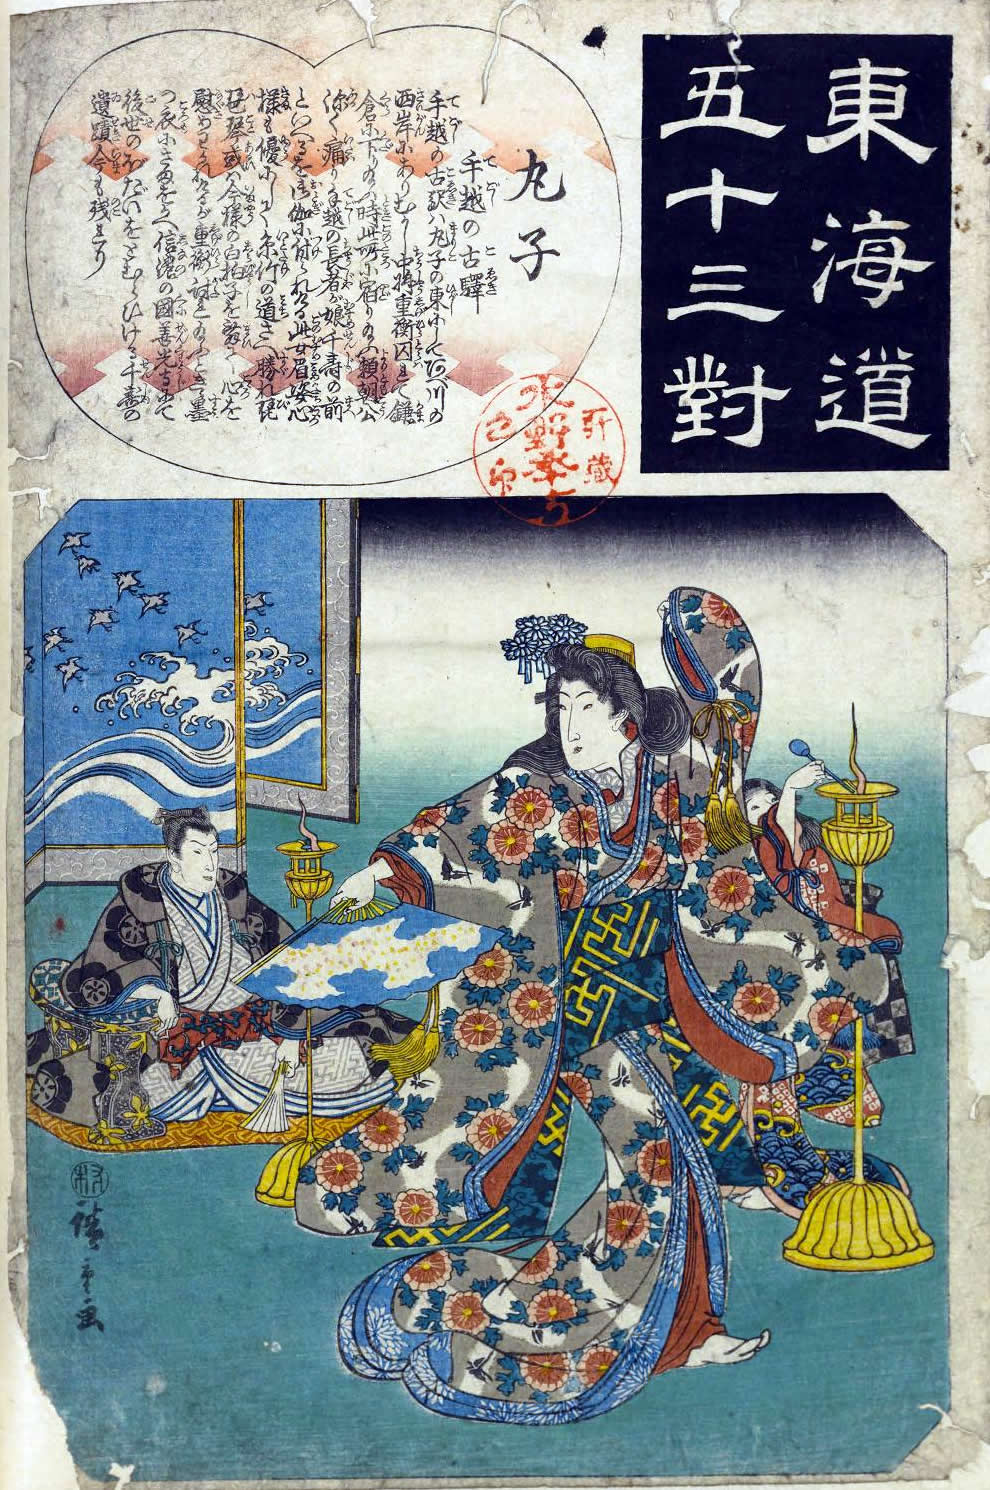 東海道
五十三對
丸子
手越の古驛
手越の古駅ハ丸子の東にして阿べ川の
西岸にありむかし中将重衡囚れて鎌
倉に下りの時此所に宿りの頼朝公
深く痛り手越の長者が娘千寿の前
といへるを御伽に付られける此女眉姿心
様も優にしく糸竹の道さへ勝れ琵
琶琴或ハ今様の白拍子を舞て心を
慰めまゐらせけるが重衡討れのとき墨
の衣にさまをかへ信濃の國善光寺にて
後世のぼだいをとむらひける千寿の
遺蹟今も残れり
廣重画